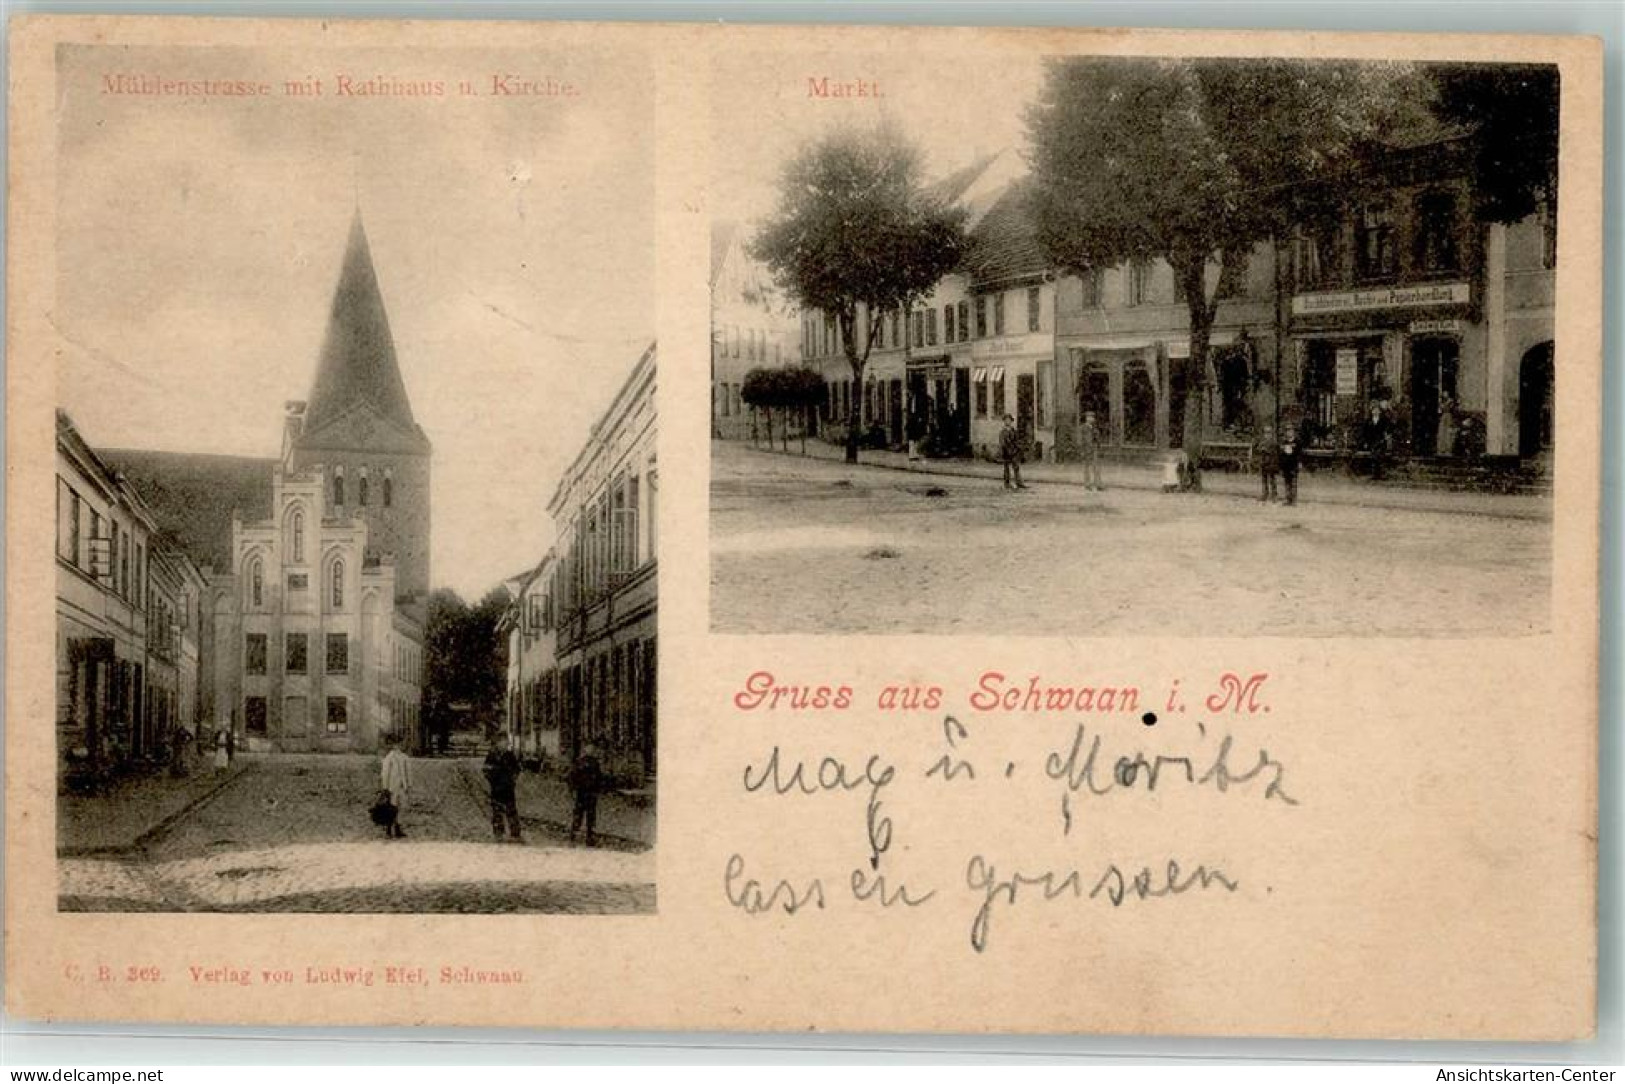 Mühlenstrasse mit Rathhaus u. Kirche.
Markt.
Buchbinderei, Buch- und Papierhandlung
Gruss aus Schwaan i. M.
Max u. Moritz
lassen grüssen.
C. B. 369. Verlag von Ludwig Kiel, Schwaan.
delcampe.net
Ansichtskarten-Center